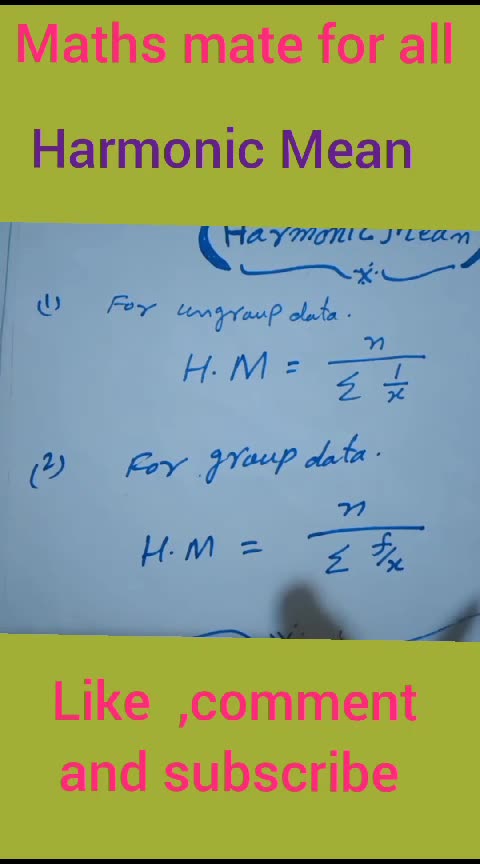 Maths mate for all
Harmonic Mean
(Harmonic Mean)
(1) For ungroup data.
H.M = n / Σ 1/x
(2) For group data.
H.M = n / Σ f/x
Like ,comment
and subscribe